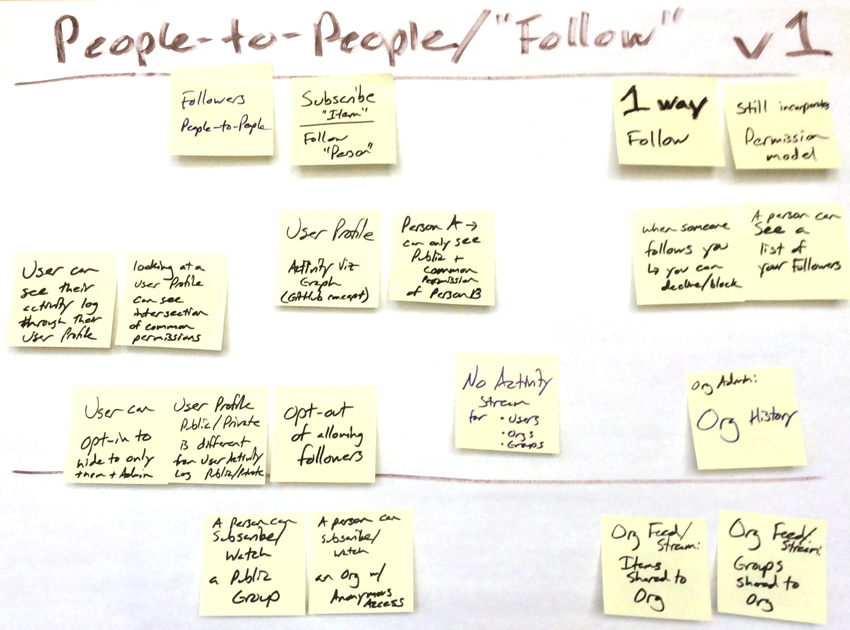 People-to-People/"Follow" v1
Followers
People-to-People
Subscribe
"Item"
Follow
"Person"
1 way
Follow
Still incorporates
Permission
model
User can
see their
activity log
through their
User Profile
looking at a
User Profile
can see
intersection
of common
permissions
User Profile
Activity Viz
Graph
(GitHub concept)
Person A →
can only see
Public +
common
Permission
of Person B
when someone
follows you
↳ you can
decline/block
A person can
See a
list of
your Followers
User can
opt-in to
hide to only
them + Admin
User Profile
Public/Private
is different
from User Activity
Log Public/Private
Opt-out
of allowing
followers
No Activity
Stream
for • Users
• Orgs
• Groups
Org Admin:
Org History
A person can
Subscribe/
Watch
a Public
Group
A person can
subscribe/
watch
an Org w/
Anonymous
Access
Org Feed/
Stream:
Items
Shared to
Org
Org Feed/
Stream:
Groups
shared to
Org